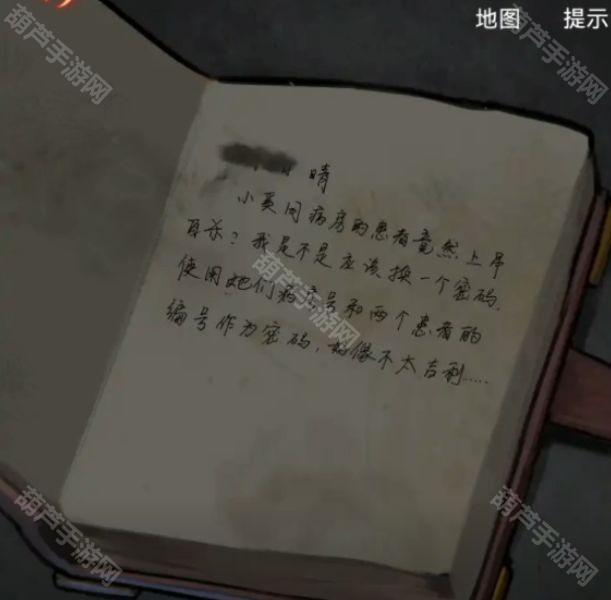 地图 提示
晴
小英同病房的患者竟然上吊
自杀？我是不是应该换一个密码，
使用她们病房号和两个患者的
编号作为密码，好像不太吉利……
葫芦手游网
葫芦手游网
葫芦手游网
葫芦手游网
葫芦手游网